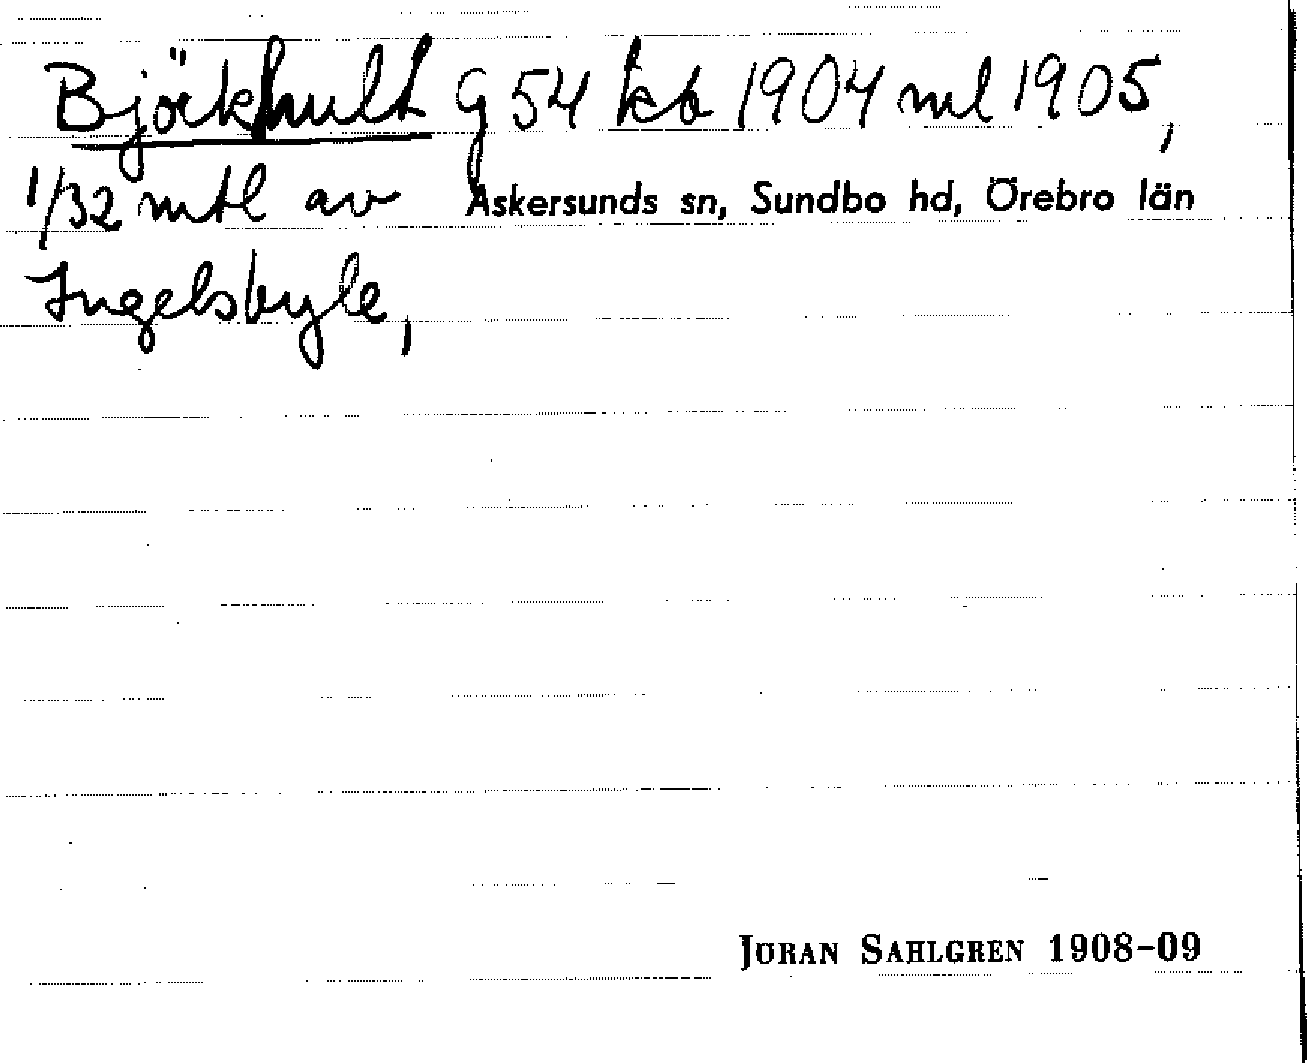 Björkhult G 54 kb 1904 ml 1905,
1/32 mtl av Askersunds sn, Sundbo hd, Örebro län
Ingelsbyle,
JÖRAN SAHLGREN 1908-09